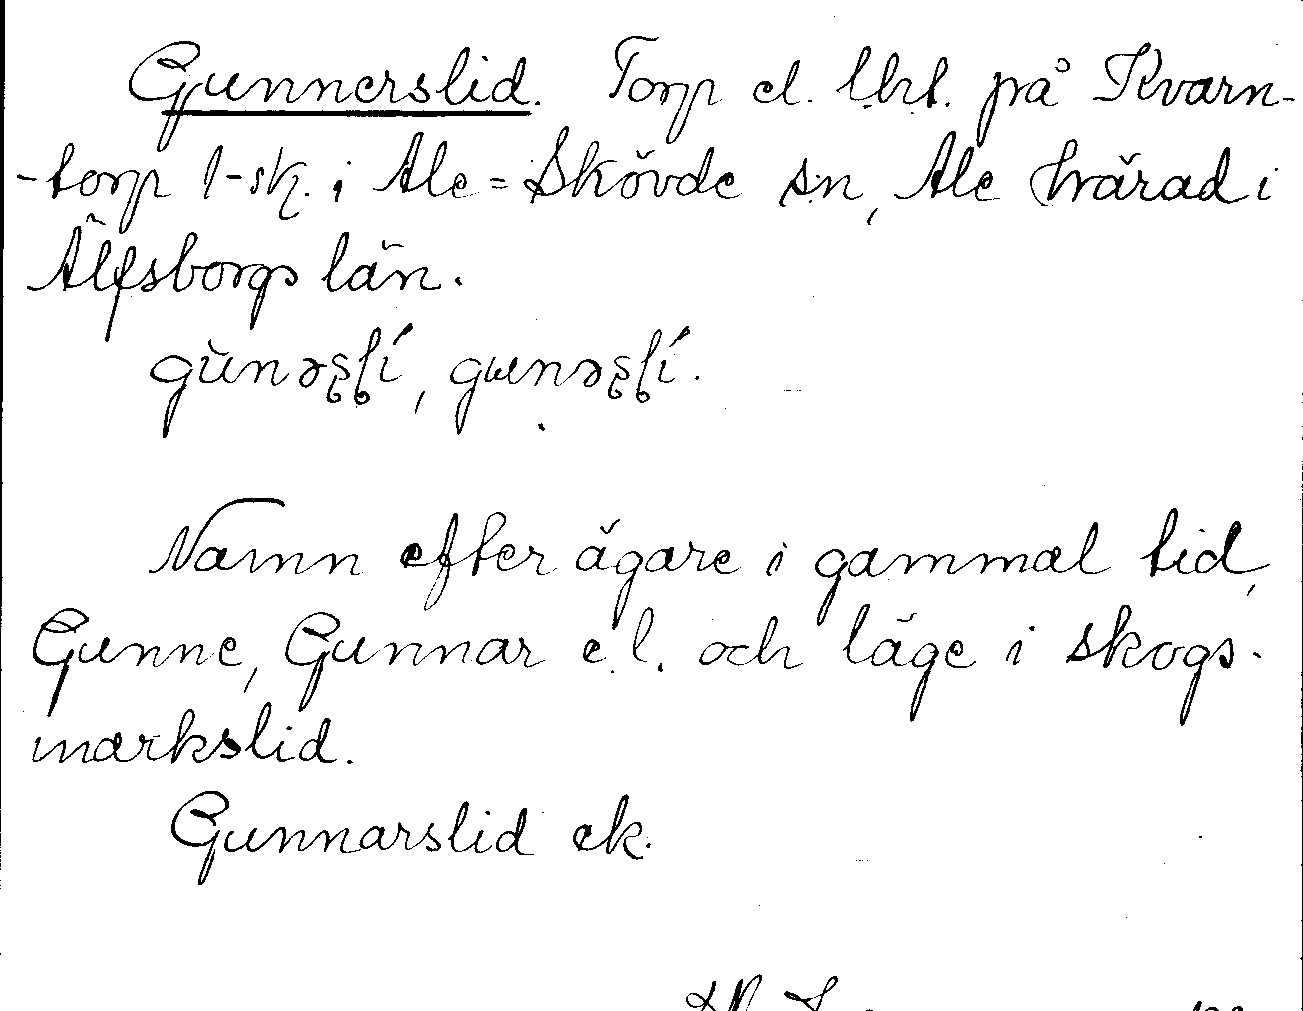 Gunnerslid. Torp el. lht. på Kvarn-
-torp 1-sk. i Ale=Skövde sn, Ale härad i
Älfsborgs län.
gùnəʂl̥í, gɯnəʂl̥í.
Namn efter ägare i gammal tid,
Gunne, Gunnar e.l. och läge i skogs-
markslid.
Gunnarslid ek.